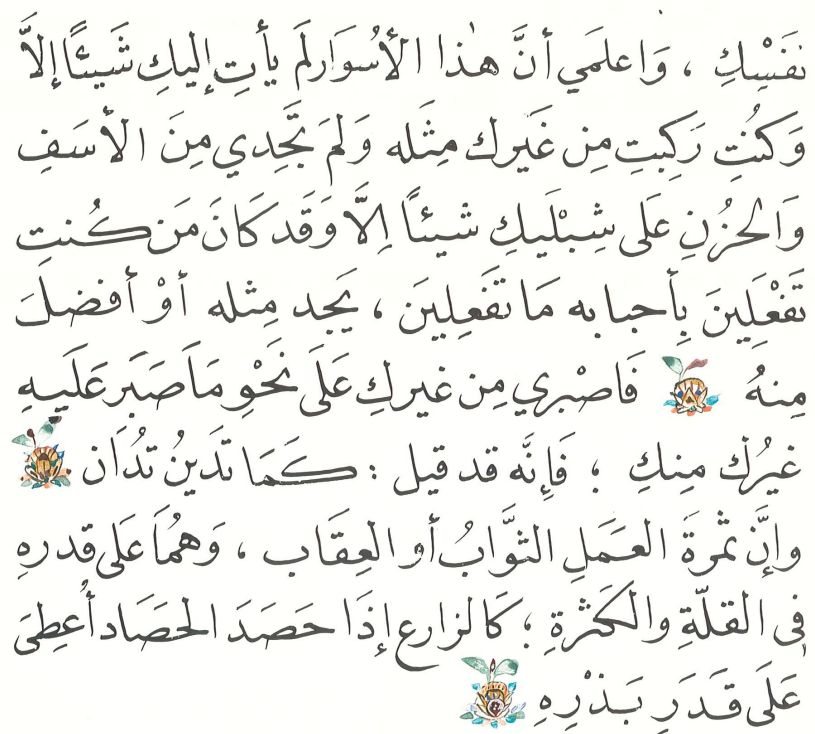 نَفَسْكِ ، وَاعلَمَي أنَّ هٰذا الأُسوَار لَم يأتِ إليكِ شَيئًا إلاَّ
وَكنُتِ رَكِبتِ مِن غَيرك مِثَله وَلمَ تَجَدِي مِنَ الأسَفِ
وَالحزُنِ عَلَى شِبْلَيكِ شيئاً اِلاَّ وَقَد كَانَ مَن كُنتِ
تَفْعَلِينَ بِأحبابه مَا تَفَعِلِينَ ، يَجِد مِثله أوْ أفضلَ
مِنهُ فَاصْبرِي مِن غيركِ عَلَى نَحْوِ مَاَ صَبَر عَلَيهِ
غيرُك مِنكِ ؛ فَإِنَّه قد قيل : كَمَا تَدَينُ تُدَان
وإنَّ ثمرةَ العَمَلِ الثوَّابُ أو العِقَاب ، وَهُمُاَ عَلى قَدره
فِى القلّةِ والكَثرةِ ؛ كَالزارع إذَا حَصَدَ الحَصَاد أُعطِىَ
عَلَى قَدَرِ بَذْرِهِ